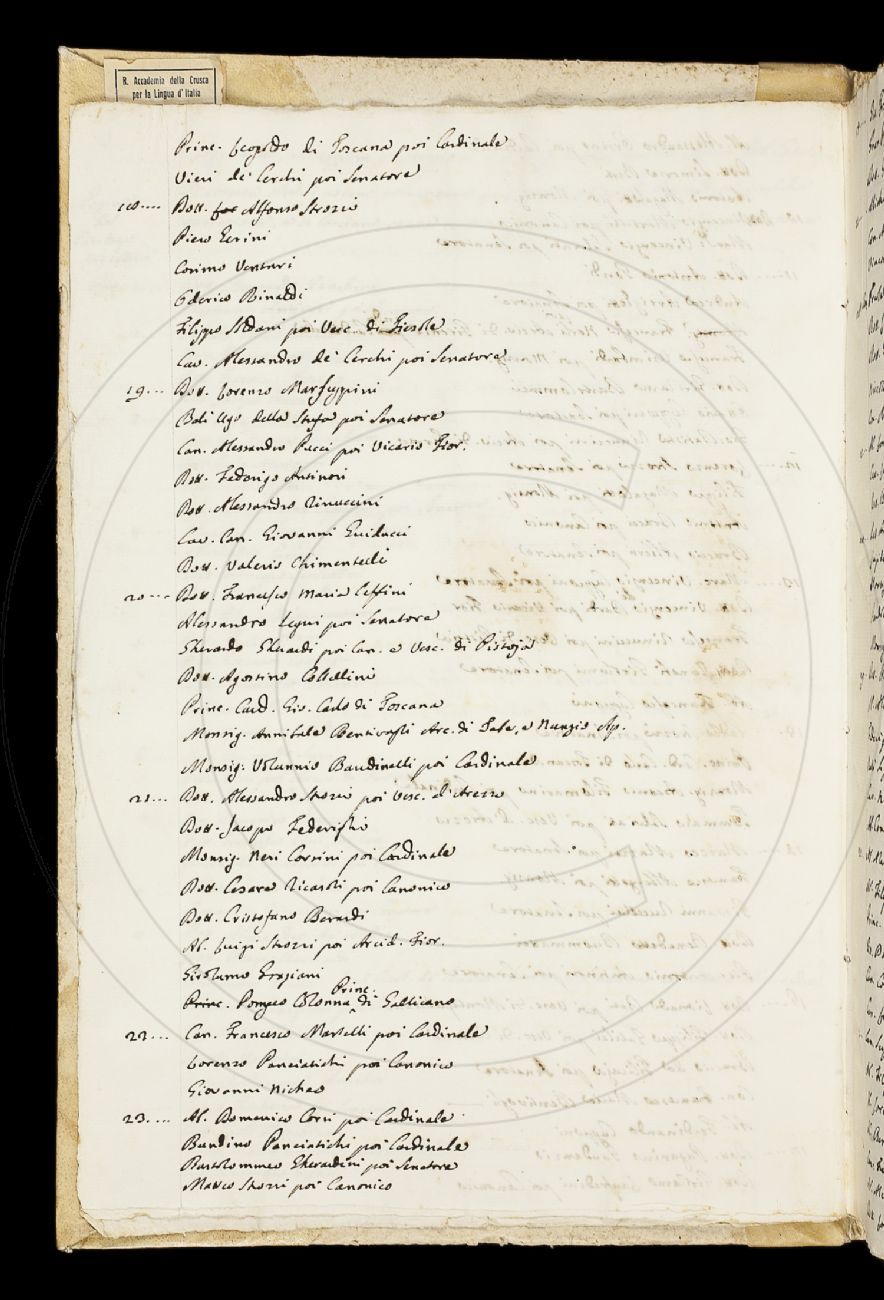 R. Accademia della Crusca
per la Lingua d'Italia
Princ. Leopoldo di Toscana poi Cardinale
Vieri de' Cerchi poi Senatore
18.... Dott. Alfonso Strozzi
Piero Gerini
Cosimo Venturi
Oderico Rinaldi
Filippo Soldani poi Vesc. di Fiesole
Cav. Alessandro de' Cerchi poi Senatore
19... Dott. Lorenzo Marsuppini
Balì Ugo della Stufa poi Senatore
Can. Alessandro Pucci poi Vicario Fior.
Dott. Federigo Antinori
Dott. Alessandro Rinuccini
Cav. Can. Giovanni Guiducci
Dott. Valerio Chimentelli
20.... Dott. Francesco Maria Ceffini
Alessandro Segni poi Senatore
Gherardo Gherardi poi Can. e Vesc. di Pistoja
Dott. Agostino Coltellini
Princ. Card. Gio. Carlo di Toscana
Monsig. Annibale Bentivogli Arc. di Tebe, e Nunzio Ap.
Monsig. Volunnio Bandinelli poi Cardinale
21... Dott. Alessandro Strozzi poi Vesc. d'Arezzo
Dott. Jacopo Federighi
Monsig. Neri Corsini poi Cardinale
Dott. Cesare Ricasoli poi Canonico
Dott. Cristofano Berardi
Ab. Luigi Strozzi poi Arcid. Fior.
Girolamo Graziani
Princ. Pompeo Colonna Princ. di Gallicano
22... Can. Francesco Martelli poi Cardinale
Lorenzo Panciatichi poi Canonico
Giovanni Richao
23.... Ab. Domenico Corsi poi Cardinale
Bandino Panciatichi poi Cardinale
Bartolommeo Gherardini poi Senatore
Marco Strozzi poi Canonico